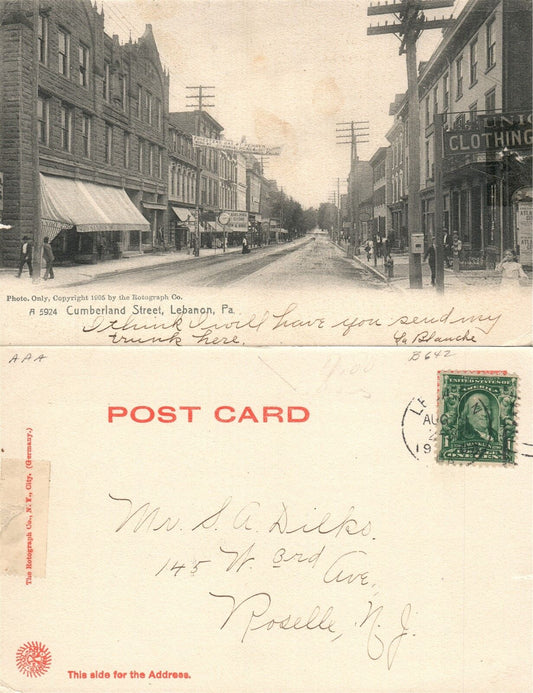 CLOTHING
Photo. Only, Copyright 1905 by the Rotograph Co.
A 5924 Cumberland Street, Lebanon, Pa.
I think I will have you send my
trunk here. La Blanche
APA
B642
POST CARD
UNITED STATES OF AMERICA
AUG
19
The Rotograph Co., N.Y. City. (Germany.)
Mr. S. A. Dilks.
145 W. 3rd Ave,
Roselle, N.J.
This side for the Address.